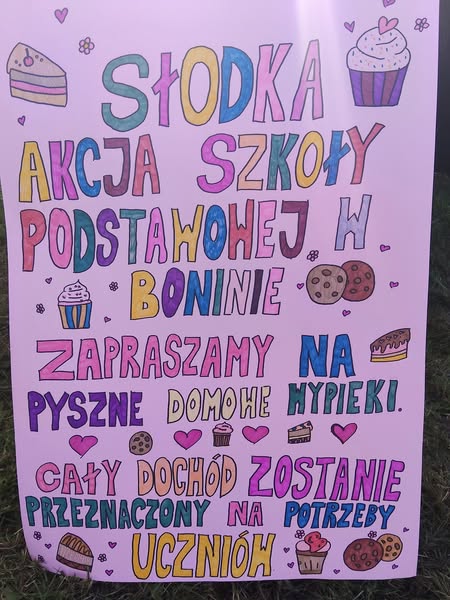 SŁODKA
AKCJA SZKOŁY
PODSTAWOWEJ W
BONINIE
ZAPRASZAMY NA
PYSZNE DOMOWE WYPIEKI.
CAŁY DOCHÓD ZOSTANIE
PRZEZNACZONY NA POTRZEBY
UCZNIÓW